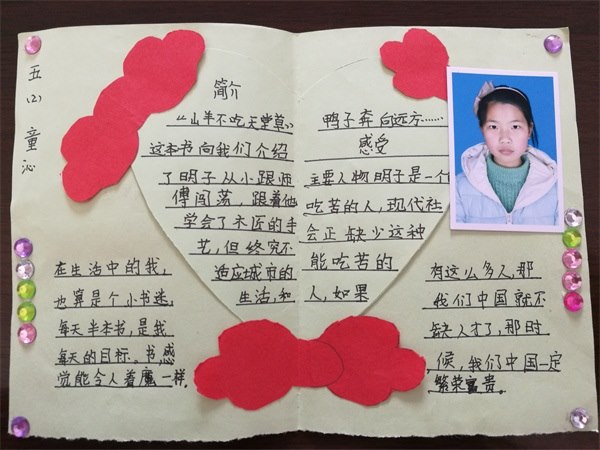 五(2) 童沁
简介
“山羊不吃天堂草》
这本书向我们介绍
了明子从小跟师
傅闯荡，跟着他
学会了木匠的手
艺，但终究不
适应城市的
生活，和
鸭子奔向远方……
感受
主要人物明子是一个
吃苦的人，现代社
会正缺少这种
能吃苦的
人，如果
在生活中的我，
也算是个小书迷，
每天半本书，是我
每天的目标。书，感
觉能令人着魔一样，
有这么多人，那
我们中国就不
缺人才了，那时
候，我们中国一定
繁荣富贵。